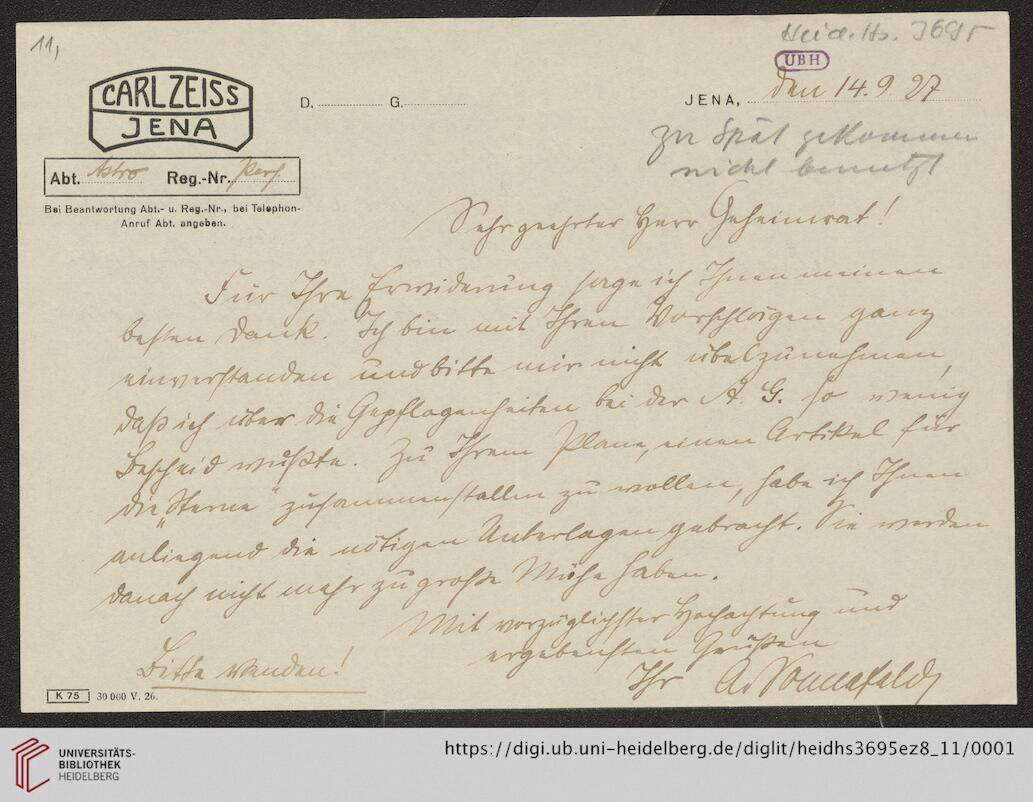 11,
Heid. Hs. 3695
UBH
CARL ZEISS
JENA
D. G.
JENA, den 14. 9 27
zu spät gekommen
nicht benutzt
Abt. Astro Reg.-Nr. Pers.
Bei Beantwortung Abt.- u. Reg.-Nr., bei Telephon-
Anruf Abt. angeben.
Sehr geehrter Herr Geheimrat!
Für Ihre Erwiderung sage ich Ihnen meinen
besten Dank. Ich bin mit Ihren Vorschlägen ganz
einverstanden und bitte mir nicht übelzunehmen,
daß ich über die Gepflogenheiten bei der A. G. so wenig
Bescheid wußte. Zu Ihrem Plane, einen Artikel für
die „Sterne" zusammenstellen zu wollen, habe ich Ihnen
anliegend die nötigen Unterlagen gebracht. Sie werden
danach nicht mehr zu große Mühe haben.
Mit vorzüglichster Hochachtung und
ergebensten Grüßen
Ihr A. Sonnefeld
Bitte wenden!
K 75 30 000 V. 26.
UNIVERSITÄTS-
BIBLIOTHEK
HEIDELBERG
https://digi.ub.uni-heidelberg.de/diglit/heidhs3695ez8_11/0001